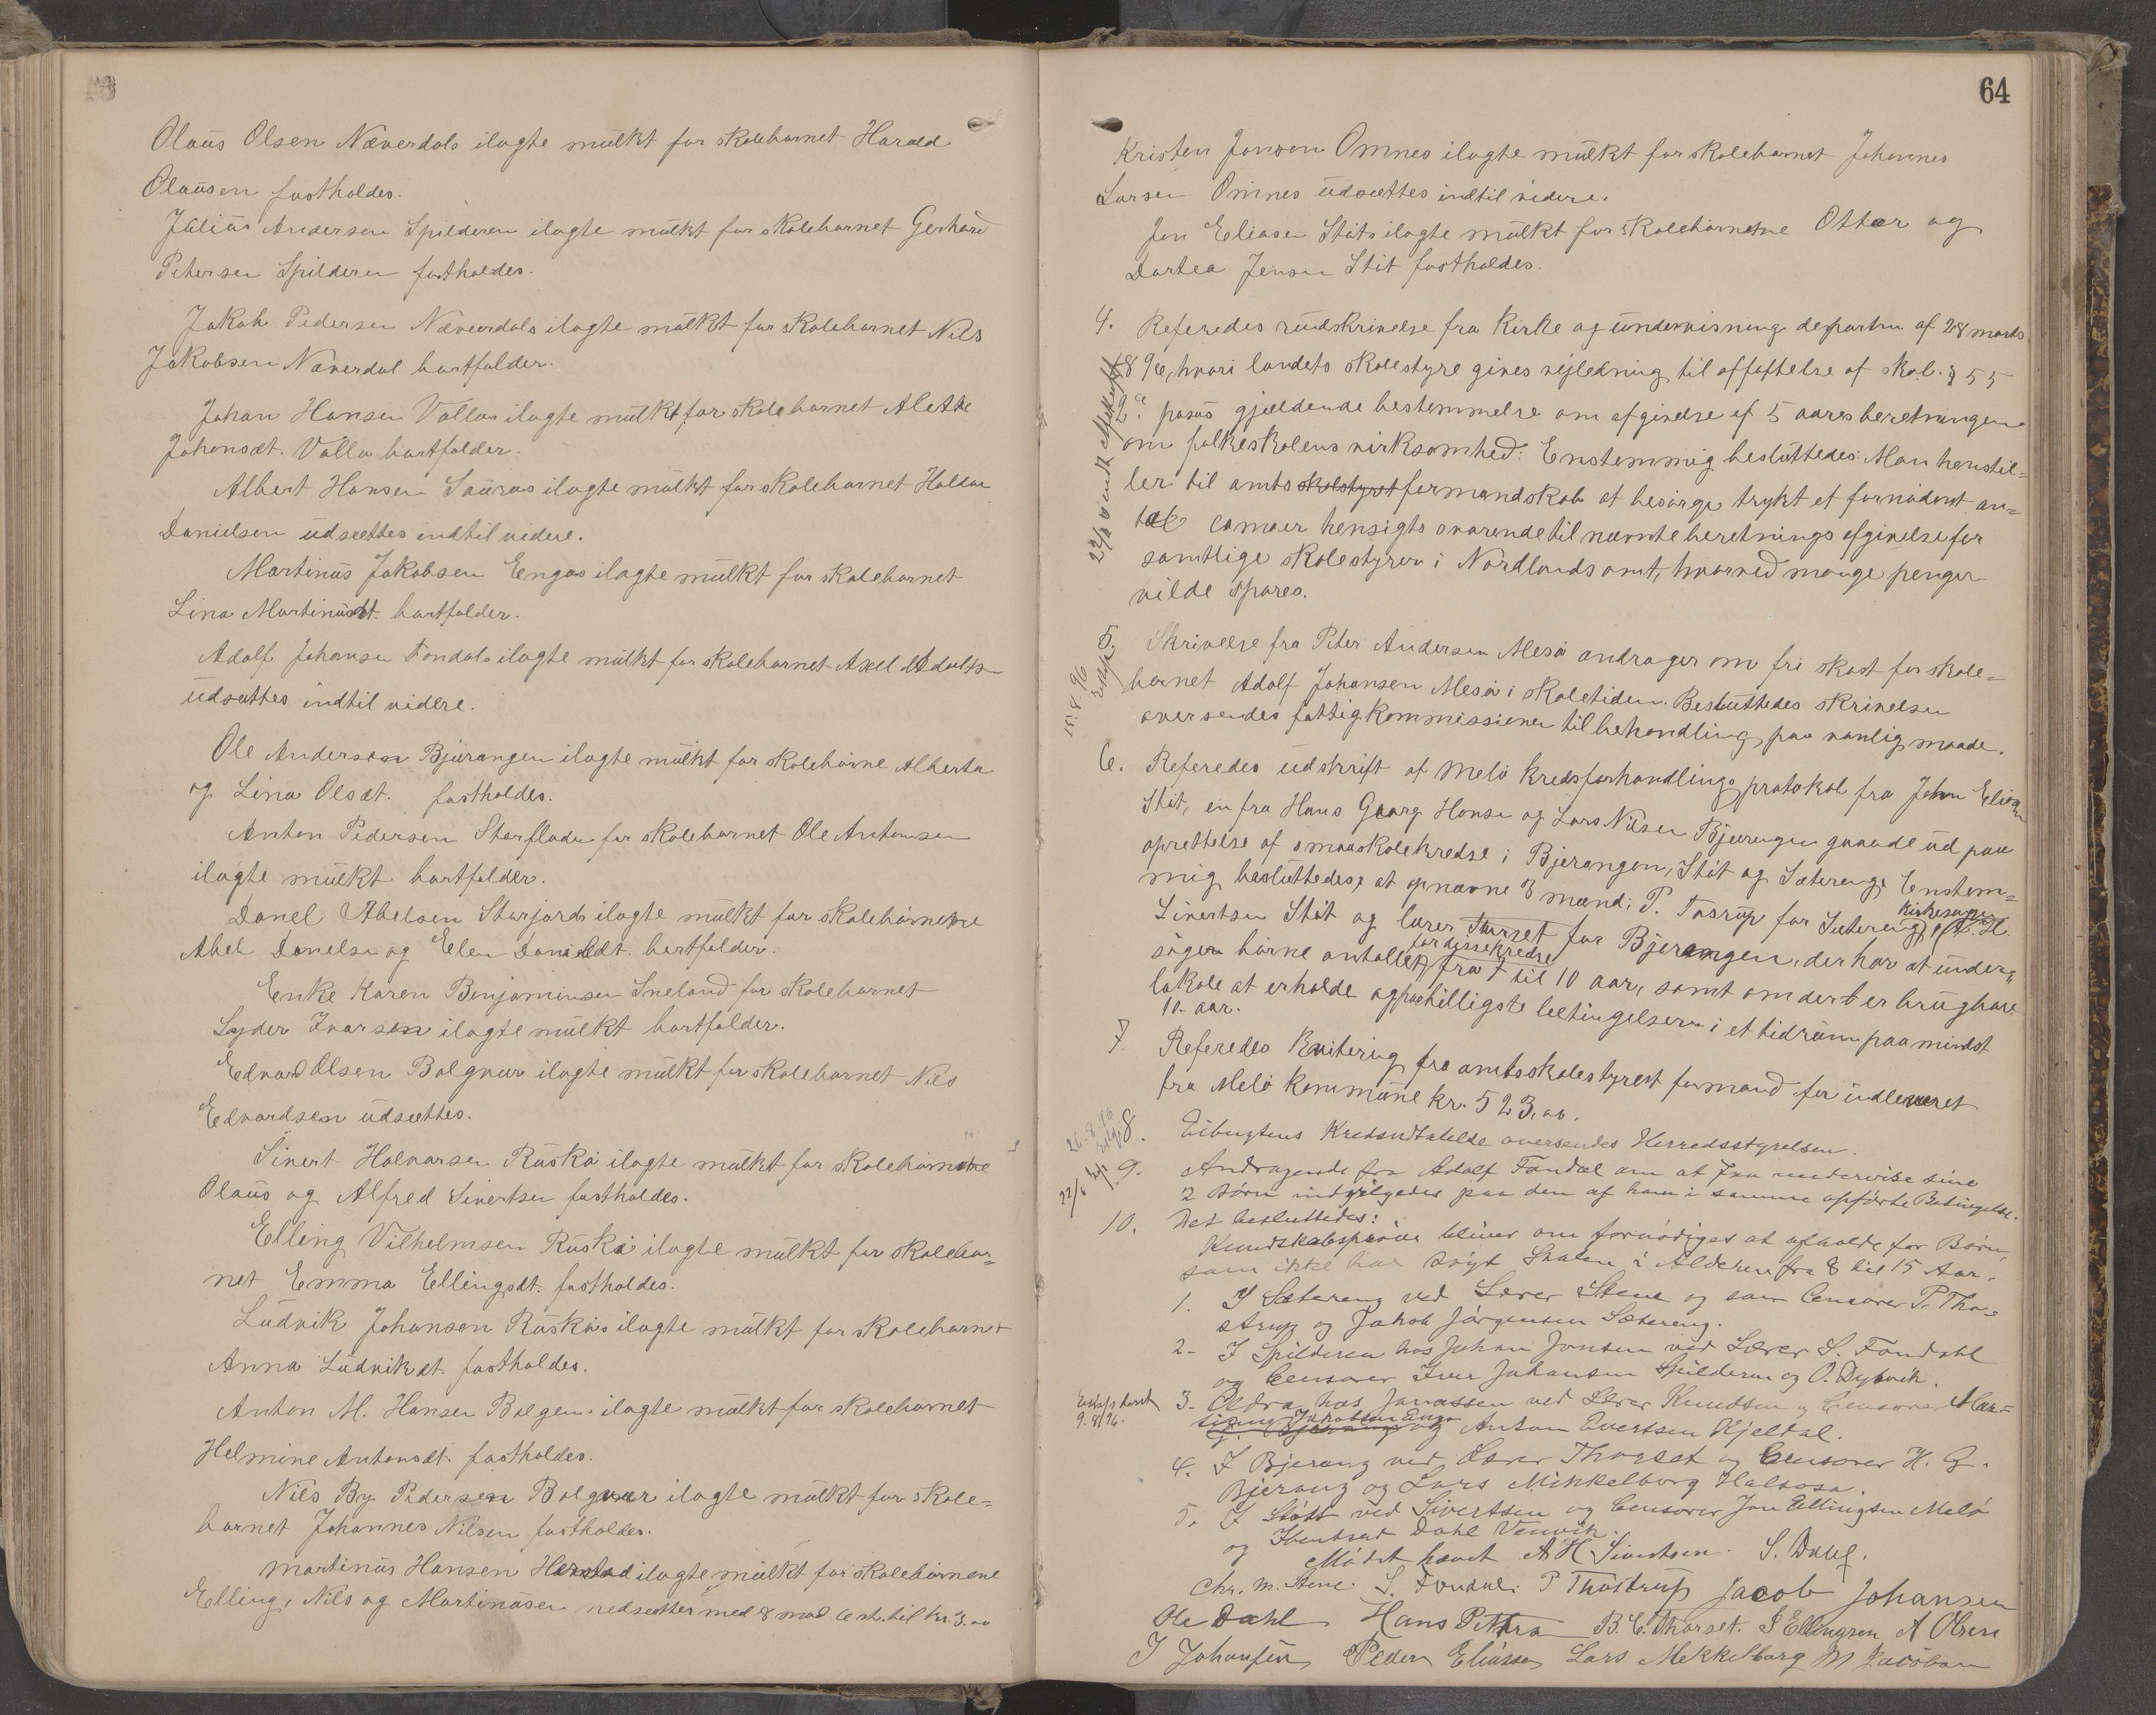 Olaus Olsen Næverdals ilagte mulkt for skolebarnet Harald
Olaussen fastholdes.
Julius Andersen Spilderen ilagte mulkt for skolebarnet Gerhard
Petersen Spilderen fastholdes.
Jakob Pedersen Næverdals ilagte mulkt for skolebarnet Nils
Jakobsen Næverdal bortfalder.
Johan Hansen Vallas ilagte mulkt for skolebarnet Alette
Johansdt. Valla bortfalder.
Albert Hansen Sauras ilagte mulkt for skolebarnet
Danielsen udsættes indtil videre.
Martinus Jakobsen Engas ilagte mulkt for skolebarnet
Lina Martinusdt. bortfalder.
Adolf Johansen Fondals ilagte mulkt for skolebarnet Axel Adolfs
udsættes indtil videre.
Ole Andersen Bjærangen ilagte mulkt for skolebørne Alberta
og Lina Olsdt. fastholdes.
Anton Pedersen Storflade for skolebarnet Ole Antonsen
ilagte mulkt bortfalder.
Danel Abelsen Storjords ilagte mulkt for skolebørnene
Abel Danelsen og Elen Danieldt. bortfalder.
Enke Karen Benjaminsen Sneland for skolebarnet
Lyder Ivarsen ilagte mulkt bortfalder.
Edvard Olsen Bolgvær ilagte mulkt for skolebarnet Nils
Edvardsen udsættes.
Sivert Halvorsen Ruskø ilagte mulkt for skolebørnene
Olaus og Alfred Sivertsen fastholdes.
Elling Vilhelmsen Ruskø ilagte mulkt for skolebar=
net Emma Ellingsdt. fastholdes.
Ludvik Johansen Ruskøs ilagte mulkt for skolebarnet
Anna Ludvikdt. fastholdes.
Anton M. Hansen Bolgens ilagte mulkt for skolebarnet
Helmine Antonsdt. fastholdes.
Nils By Pedersen Bolgvær ilagte mulkt for skole=
barnet Johannes Nilsen fastholdes.
Martinus Hansen ilagte mulkt for skolebørnene
Elling, Nils og Martinusen nedsættes med til kr. 3.00
64
Kristen Jonsen Omnes ilagte mulkt for skolebarnet Johannes
Larsen Omnes udsættes indtil videre.
Jon Eliasen Støts ilagte mulkt for skolebørnene Ottar og
Dortea Jensen Støt fastholdes.
4. Referedes rundskrivelse fra Kirke og undervisnings departm af 28 marts
1896, hvori landets skolestyre gives vejledning til affattelse af skol. § 55
2. pasus gjældende bestemmelse om afgivelse af 5 aars beretningen
om folkeskolens virksomhed: Enstemmig besluttedes: Man henstil=
ler til amts skolstyret formandskab at besørge trykt et fornødent an=
tal hensigts svarende til nævnte beretnings afgivelse for
samtlige skolestyrer i Nordlands amt, hvorved mange penger
vilde spares.
5. Skrivelse fra Peter Andersen Mesø andrager om fri kost for skole=
barnet Adolf Johansen Mesø i skoletiden. Besluttedes skrivelsen
oversendes fattigkommissionen til behandling paa vanlig maade.
15.8.96
6. Referedes udskrift af Melø kredsforhandlings protokol fra John Eliasen
Støt, en fra Hans Georg Hansen og Lars Nilsen Bjærangen gaaende ud paa
oprettelse af smaaskolekredse i Bjerangen, Støt og Sætereng. Enstem=
mig besluttedes, at opnævne 3 mænd: P. Tostrup for Sætereng, kirkesanger A. H.
Sivertsen Støt og lærer Torset for Bjerangen, der har at under=
søge børne antallet for disse kredse fra 7 til 10 aar, samt om der er brugbare
lokale at erholde og paa billigste betingelserne i et tidsrum paa mindst
10 aar.
7. Referedes Kvitering fra amtsskolestyrets formand for indleveret
fra Melø Kommune kr. 523,00.
26.8.96
8. Eibugtens Kredsudtalelse oversendes Herredsstyrelsen.
22/6
9. Andragende fra Adolf Fondal om at faa undervise sine
2 Børn indvilgedes paa den af ham i samme opførte Betingelse.
10. Det besluttedes:
Kundskabsprøve bliver om fornødiges at afholde for Børn,
som ikke har søgt Skolen i Alderen fra 8 til 15 Aar.
1. I Sætereng ved Lærer Stene og som Censorer P. Tho=
strup og Jakob Jørgensen Sætereng.
2- I Spilderen hos Johan Jonsen ved Lærer S. Fondahl
og Censorer Iver Johansen Spilderen og O. Dybvik.
9.8/96.
3. hos Jonassen ved Lærer Knudsen og Censorer Mar=
tinus Jakobsen Enga og Anton Evertsen Kjeldal.
4. I Bjerang ved Lærer Thorset og Censorer H. G.
Bjerang og Lars Mikkelborg Halsosa.
5. I Støtt ved Sivertsen og Censorer Jon Ellingsen Melø
og Dahl Venvik.
Mødet hævet A H Sivertsen. S. Dahl.
Chr. M. Stene. S. Fondal. P Thostrup Jacob Johansen
Ole Dahl Hans Pettra B. C. Thorset. J Ellingsen A Olsen
J Johansen Peder Eliassen Lars Mekkelborg M Jacobsen